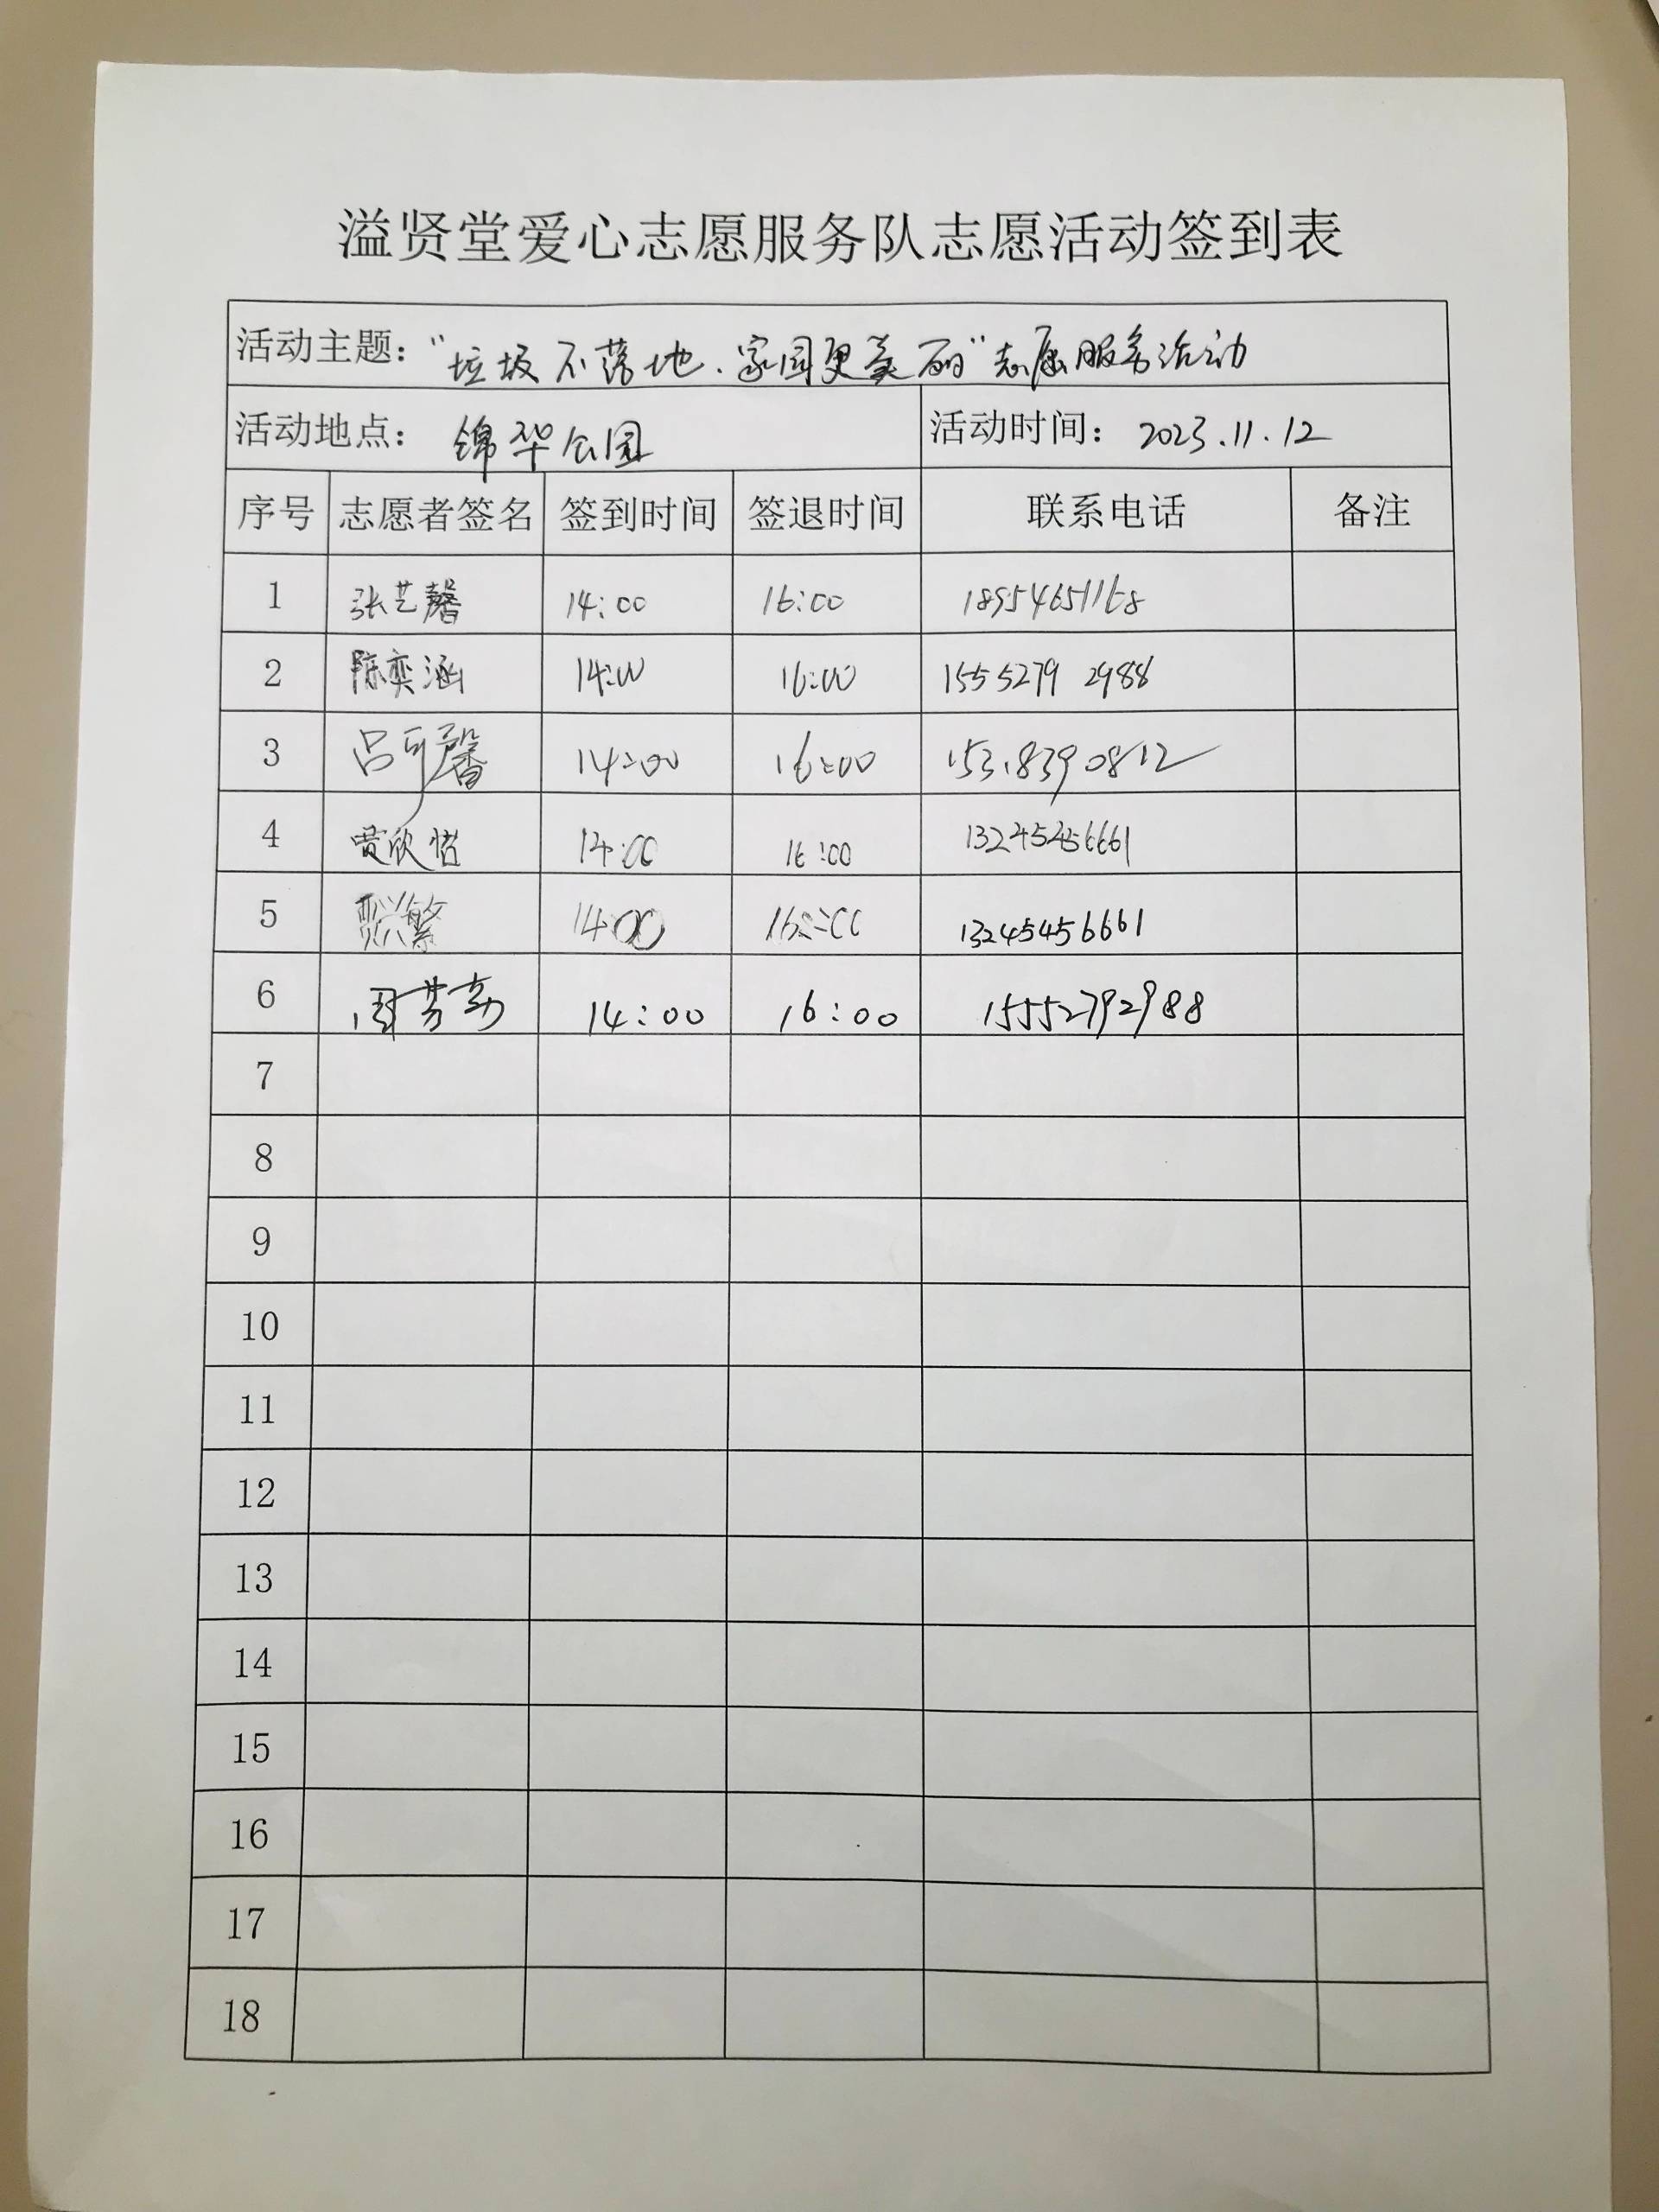 溢贤堂爱心志愿服务队志愿活动签到表
活动主题：“垃圾不落地.家园更美丽”志愿服务活动
活动地点： 锦华公园 活动时间：2023.11.12
序号 志愿者签名 签到时间 签退时间 联系电话 备注
1 张艺馨 14:00 16:00 18954651168
2 陈奕涵 14:00 16:00 15552792988
3 吕可馨 14:00 16:00 15318390812
4 14:00 16:00 13245456661
5 14:00 16:00 13245456661
6 14:00 16:00 15552792988
7
8
9
10
11
12
13
14
15
16
17
18